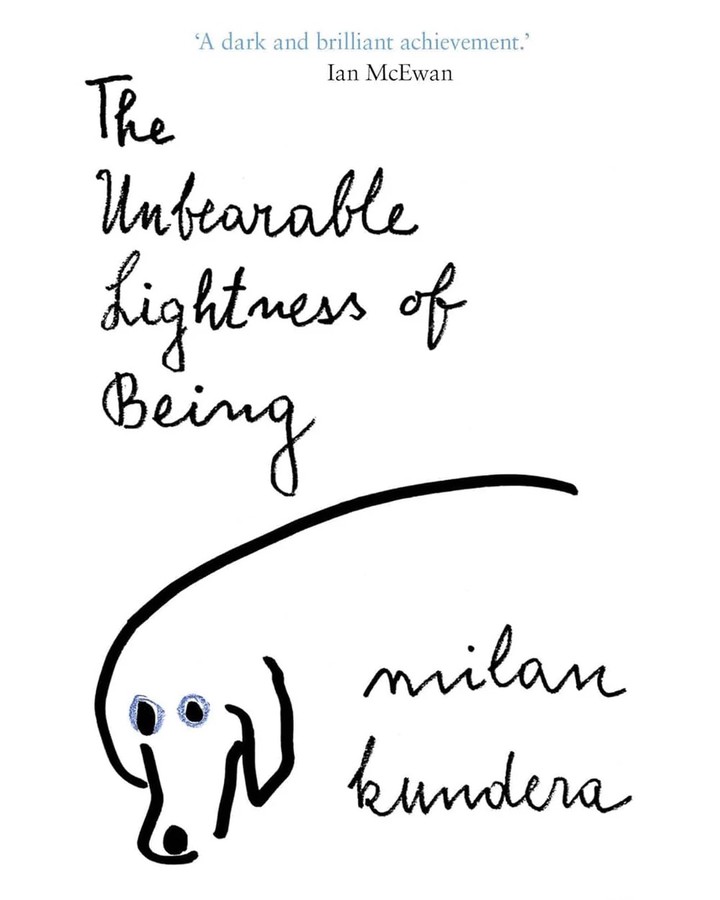 ‘A dark and brilliant achievement.’
Ian McEwan
The
Unbearable
Lightness of
Being
milan
kundera